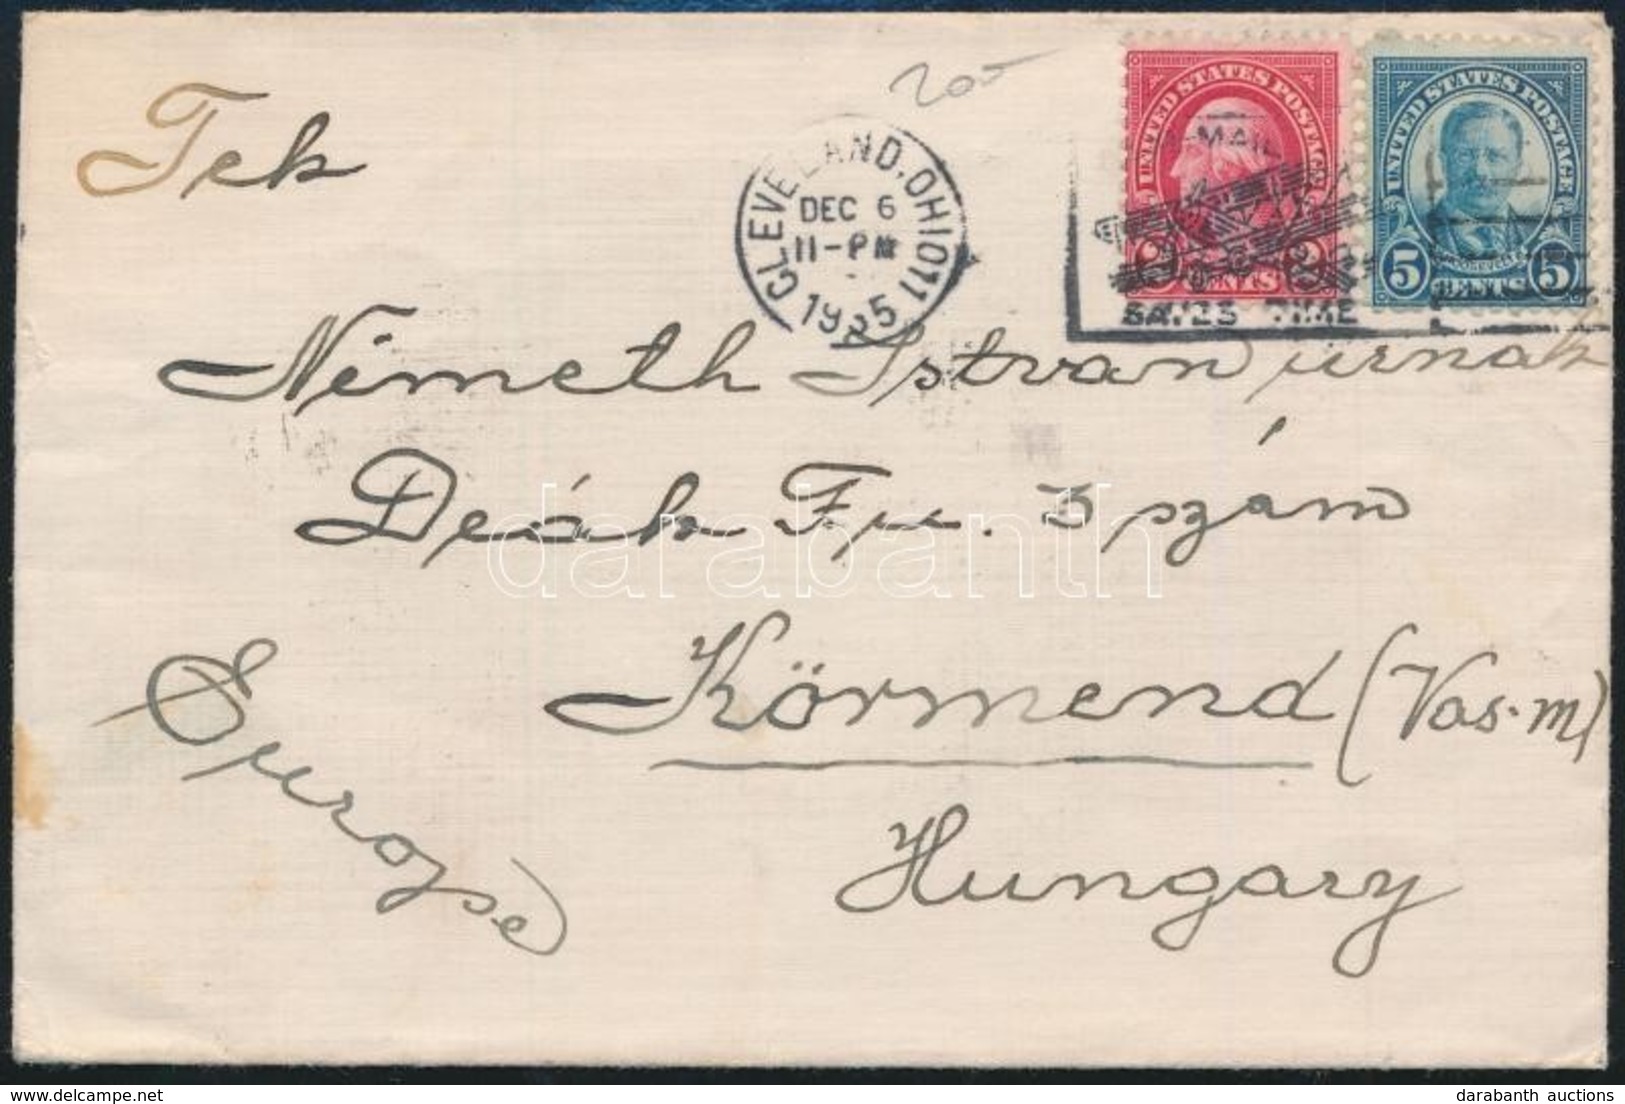 200
UNITED STATES POSTAGE
UNITED STATES POSTAGE
CLEVELAND, OHIO 11
DEC 6
11-PM
1935
MAIL
SAVES TIME
2 CENTS 2
5 CENTS 5
Tek
Németh Istvan úrnak
Deák Fu. 3 szám
darabanth
Körmend (Vas.m)
Europe
Hungary
darabanth auctions